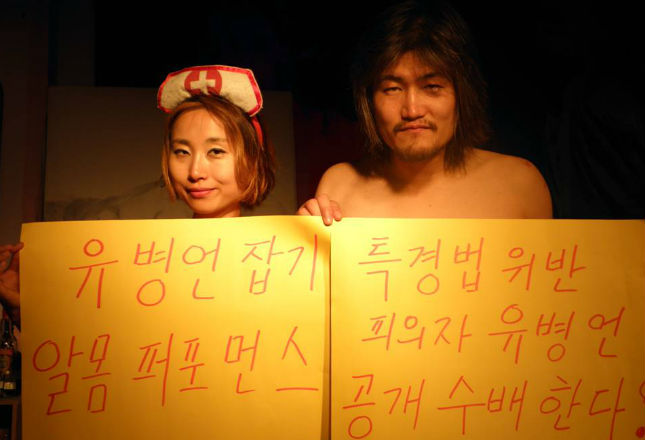 유병언 잡기
알몸 퍼포먼스
특경법 위반
피의자 유병언
공개 수배 한다!